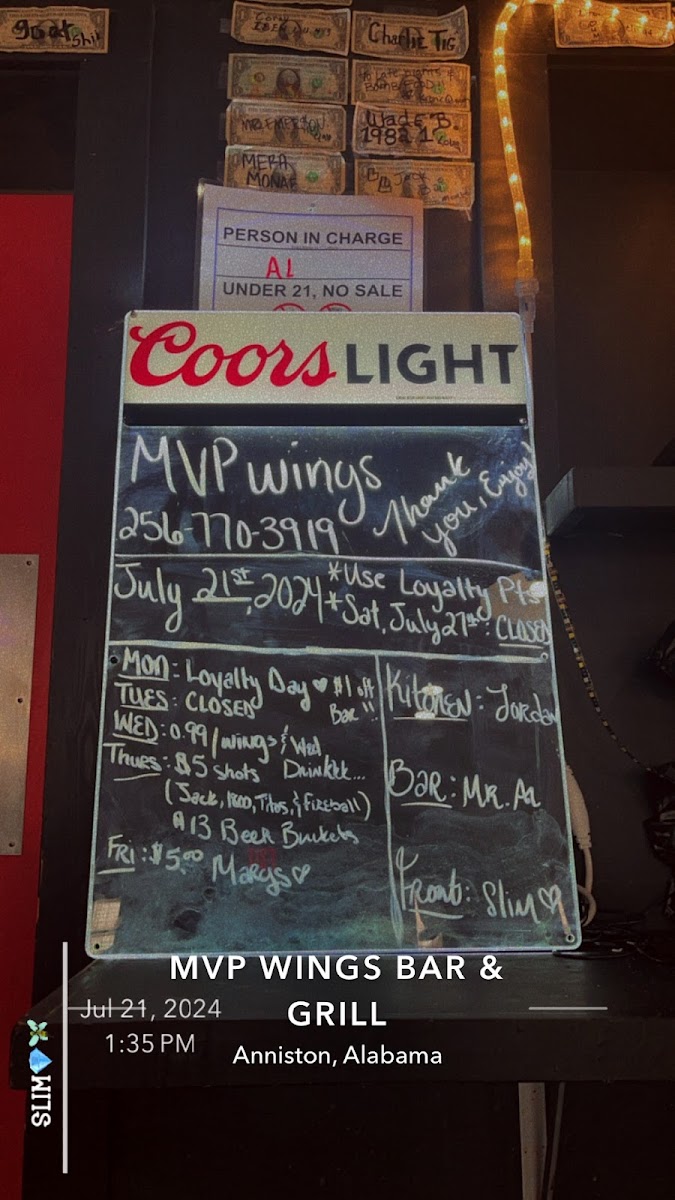 goat
Shit
Charlie TIG
MR. EMERSON
Wade B.
1982
MEKA
MONAE
Jack
PERSON IN CHARGE
AL
UNDER 21, NO SALE
Coors LIGHT
MVP wings
Thank
you, Enjoy!
256-770-3919
July 21st, 2024
*Use Loyalty Pts
*Sat, July 27th: CLOSED
MON: Loyalty Day ♡ $1 off
Bar!!
TUES: CLOSED
WED: 0.99/wings & Wed
Drinkkk...
Thues: $5 shots
(Jack, 1800, Titos, & Fireball)
13 Beer Buckets
FRI: $5.00
Marys ♡
Kitchen: Jordan
Bar: Mr. AL
Front: Slim ♡
MVP WINGS BAR &
GRILL
Jul 21, 2024
1:35 PM
Anniston, Alabama
SLIM